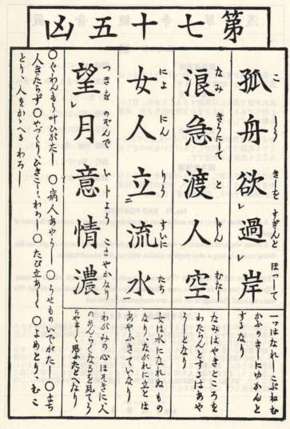 第七十五凶
孤舟欲過岸
こしうきしをすぎんとほつして
一つはなれしこぶねむ
かふのきしにゆかんと
するなり
浪急渡人空
なみきうにしてとじんむなし
なみはやきところを
わたらんとするはあや
うしとなり
女人立流水
によにんりうすいにたち
女は水になれぬもの
なり、ながれに立とは
あやふきていなり
望月意情濃
つきをのぞんでいじようこまやかなり
わがみの心はそきに人
のあんらくなるを見てう
らやましく思ふたとへなり
〇ぐわんもう叶ひがたし 〇病人あやうし 〇うせものいでがたし 〇まち
人きたらず 〇やづくりひきこしわろし 〇たび立あし 〇よめとり、むこ
とり、人をかゝへるわろし